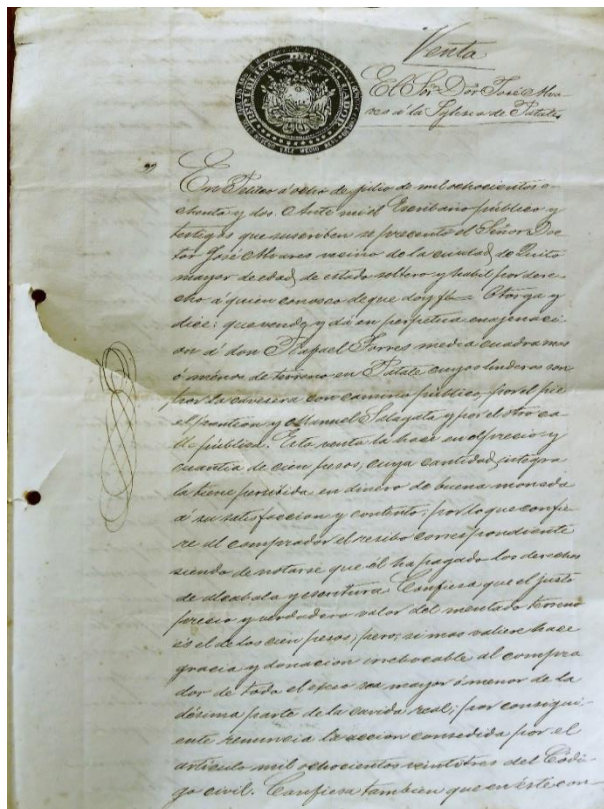 Venta
El Sor. Dor. José Alva
res á la Yglesia de Patate
En Pelileo á ocho de julio de mil ochocientos o-
chenta y dos. Ante mi el Escribano público y
testigos que suscriben se presentó el Señor Doc
tor José Alvares vecino de la ciudad de Quito
mayor de edad, de estado soltero y habil por dere-
cho á quien conosco de que doy fé. Otorga y
dice: que vende y dá en perpetua enajenaci-
on á don Rafael Torres media cuadra mas
ó menos de terreno en Patate cuyos linderos son
por la cavesera con camino público, por el pié
el panteon y Manuel Salagata y por el otro ca-
lle pública. Esta venta la hace en el precio y
cuantia de cien pesos, cuya cantidad integra
la tiene persibida en dinero de buena moneda
a su satisfaccion y contento; por lo que confie
re al comprador el recibo correspondiente
siendo de notarse que él ha pagado los derechos
de alcabala y escritura. Confiesa que el justo
precio y verdadero valor del mentado terreno
es el de los cien pesos; pero, si mas valiere hace
gracia y donacion irrebocable al compra
dor de todo el exeso sea mayor ó menor de la
désima parte de la cavida real; por consigui-
ente renuncia la accion consedida por el
artículo mil ochocientos veintitres del Códi-
go civil. Confiesa tambien que en éste con-